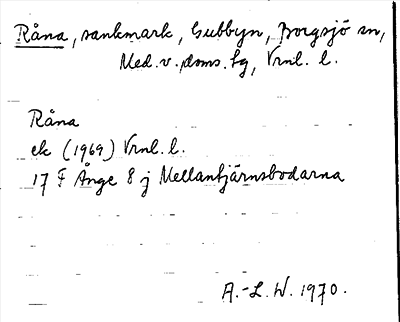 Råna, sankmark, Gubbyn, Borgsjö sn,
Med. v. doms. sg, Vrnl. l.
Råna
ek (1969) Vrnl. l.
17 F Ånge 8 j Mellantjärnsbodarna
A.-L. W. 1970.